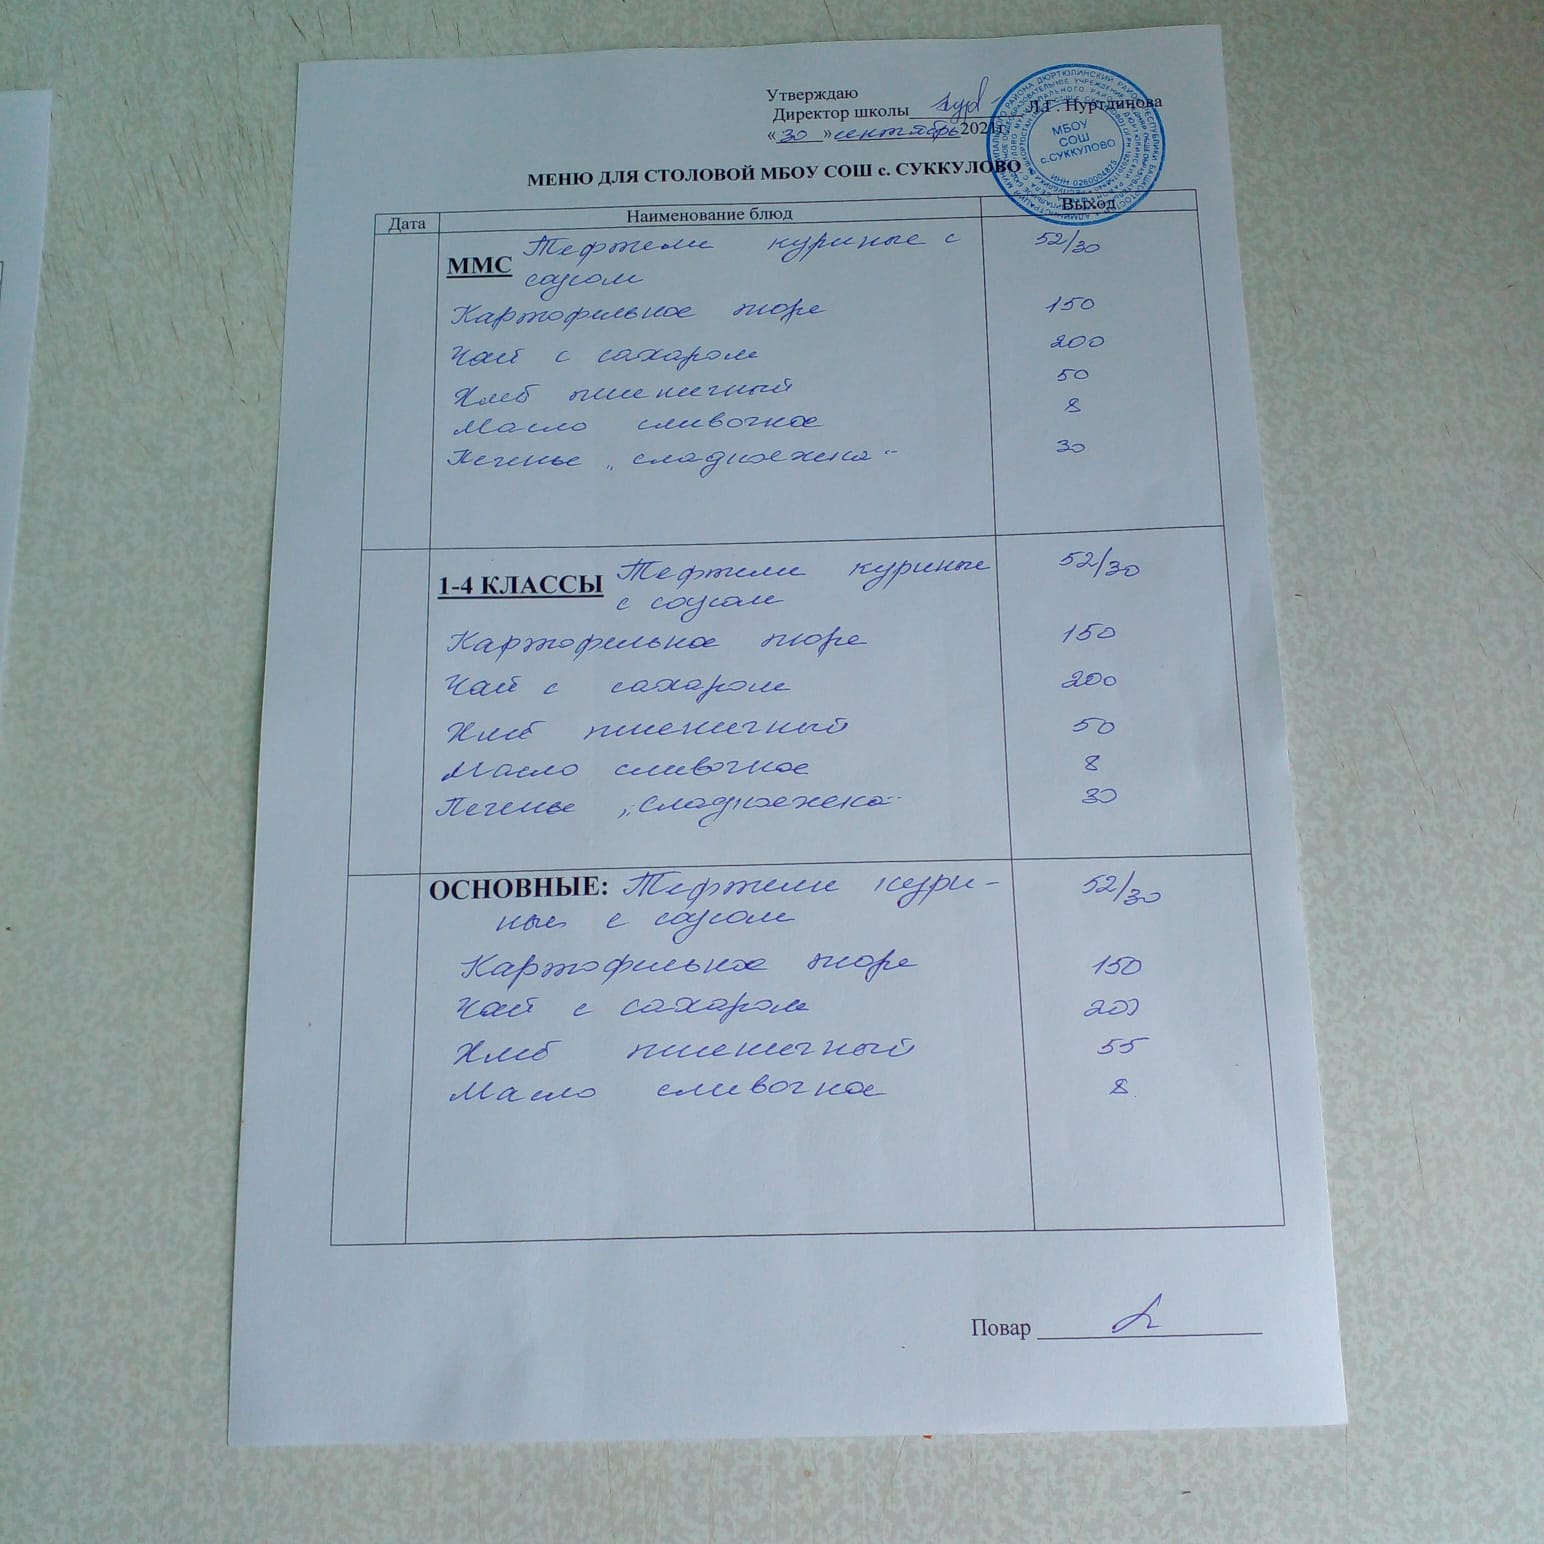 Утверждаю
Директор школы Л.Г. Нуртдинова
«30» сентябрь 2021г.
МБОУ
СОШ
с.СУККУЛОВО
ИНН 0260004825
МЕНЮ ДЛЯ СТОЛОВОЙ МБОУ СОШ с. СУККУЛОВО
Дата Наименование блюд Выход
ММС Тефтели куриные с 52/30
соусом
Картофельное пюре 150
Чай с сахаром 200
Хлеб пшеничный 50
Масло сливочное 8
Печенье „сладкоежка“ 30
1-4 КЛАССЫ Тефтели куриные 52/30
с соусом
Картофельное пюре 150
Чай с сахаром 200
Хлеб пшеничный 50
Масло сливочное 8
Печенье „Сладкоежка“ 30
ОСНОВНЫЕ: Тефтели кури- 52/30
ные с соусом
Картофельное пюре 150
Чай с сахаром 200
Хлеб пшеничный 55
Масло сливочное 8
Повар